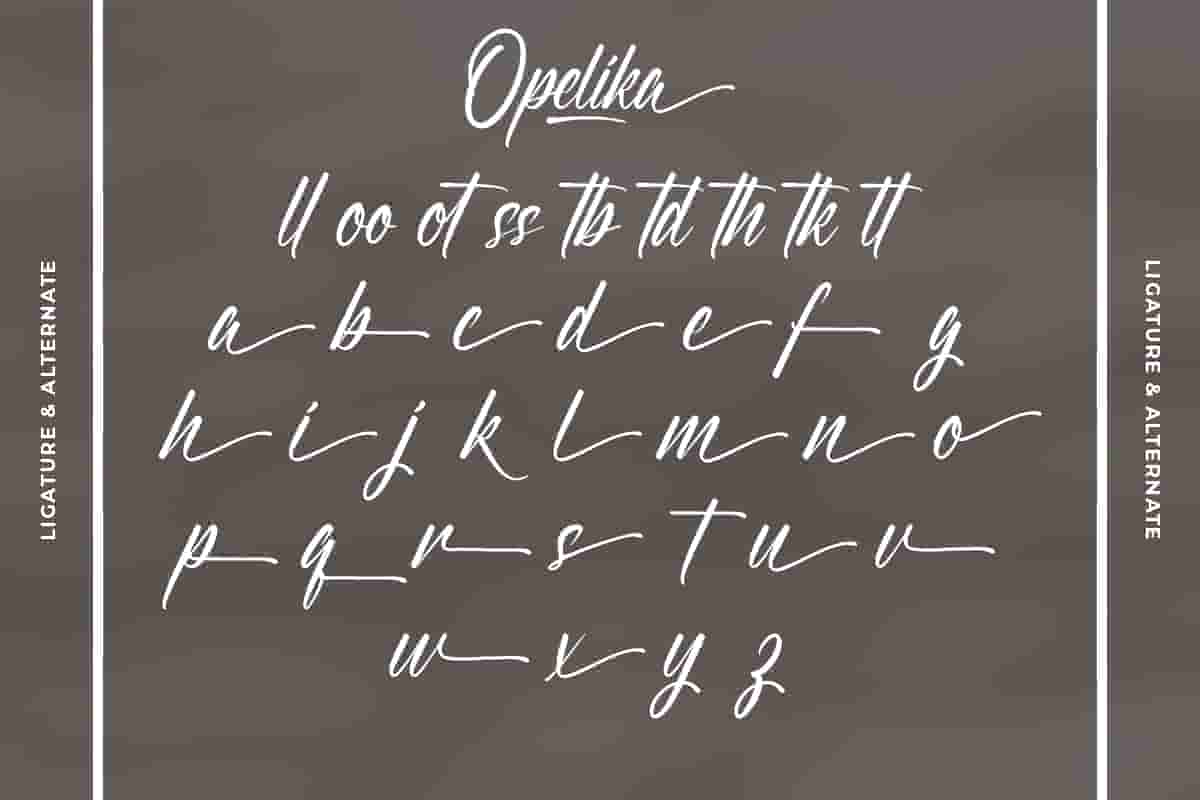 Opelika
ll oo ot ss tb td th tk tt
a b c d e f g
h i j k l m n o
p q r s t u v
w x y z
LIGATURE & ALTERNATE
LIGATURE & ALTERNATE